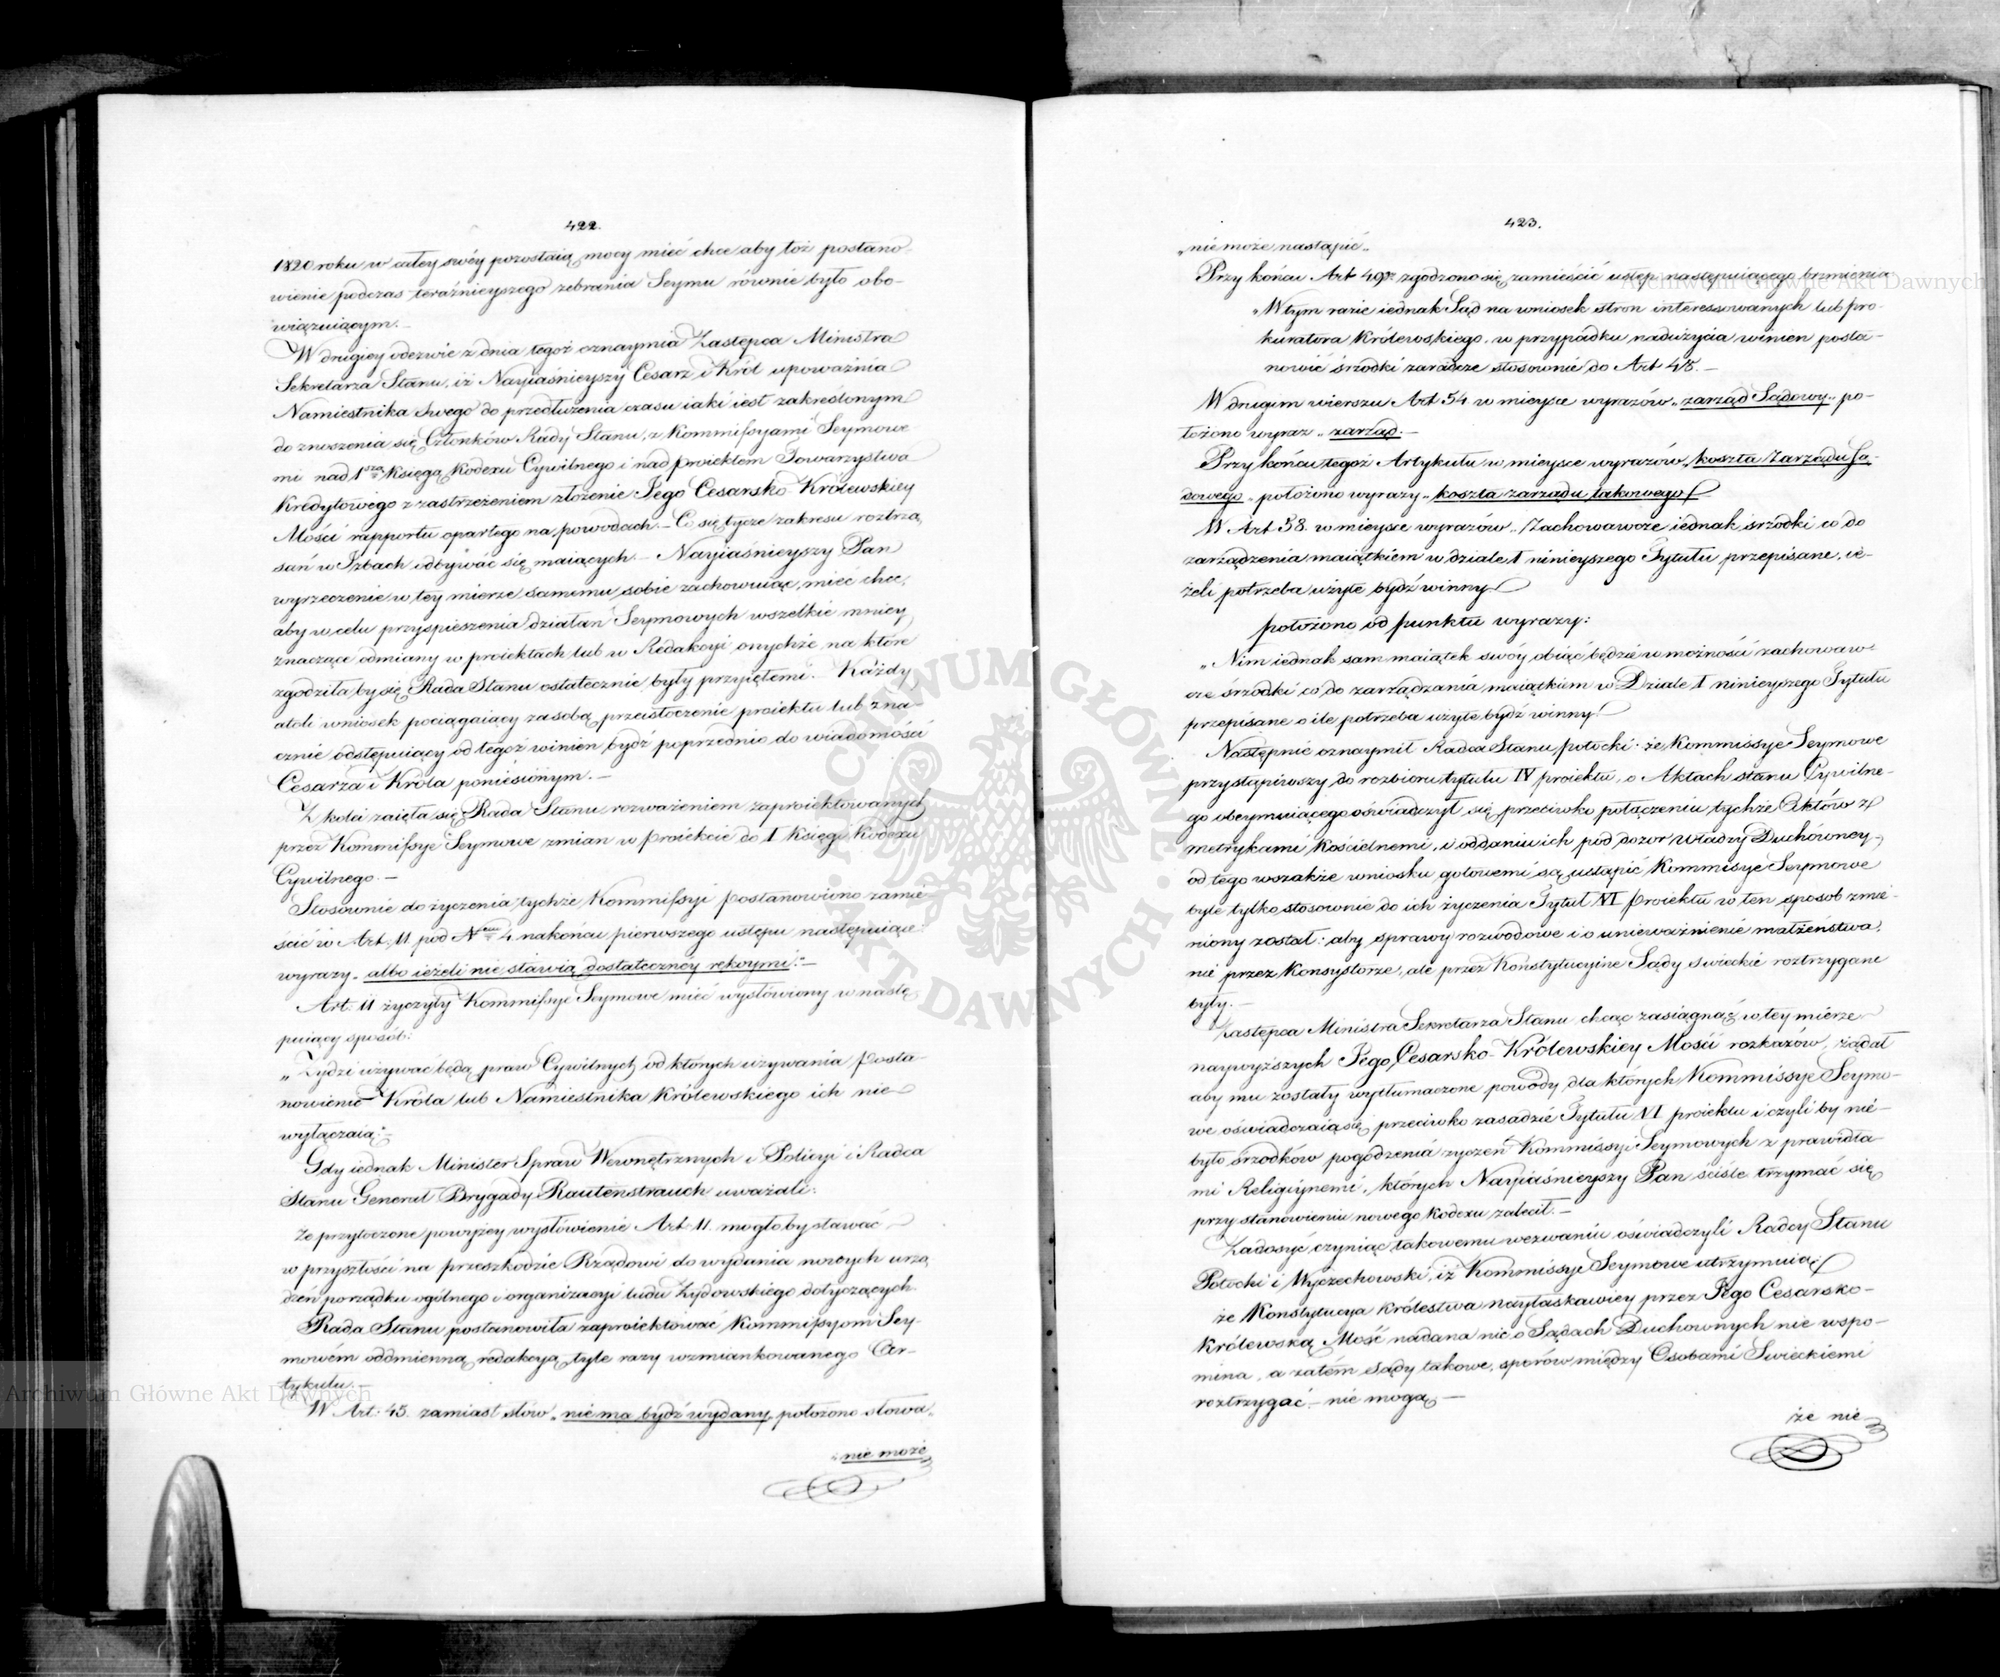 422.
1820 roku w całey swéy pozostaią mocy mieć chce aby toż postano-
wienie podczas teraźnieyszego zebrania Seymu równie było obo-
wiązuiącym.—
W drugiey odezwie z dnia tegoż oznaymia Zastępca Ministra
Sekretarza Stanu, iż Nayiaśnieyszy Cesarz i Król upoważnia
Namiestnika Swego do przedłużenia czasu iaki iest zakreślonym
do znoszenia się Członków Rady Stanu, z Kommissyami Seymowe
mi nad 1szą Księgą Kodexu Cywilnego i nad proiektem Towarzystwa
Kredytowego z zastrzeżeniem złożenie Jego Cesarsko Królewskiey
Mości rapportu opartego na powodach.— Co się tycze zakresu roztrzą
sań w Izbach odbywać się maiących.— Nayiaśnieyszy Pan
wyrzeczenie w tey mierze samemu sobie zachowuiąc, mieć chce,
aby w celu przyspieszenia działań Seymowych wszelkie mniey
znaczące odmiany w proiektach lub w Redakcyi onychże, na które
zgodziłaby się Rada Stanu ostatecznie były przyiętemi. Każdy
atoli wniosek pociągaiący za sobą przeistoczenie proiektu lub zna-
cznie odstępuiący od tegoż winien bydź poprzednio do wiadomości
Cesarza i Króla poniesionym.—
Z kolei zaięła się Rada Stanu rozważeniem zaproiektowanych
przez Kommissye Seymowe zmian w proiekcie do I Księgi Kodexu
Cywilnego.—
Stosownie do życzenia tychże Kommissyi postanowiono zamie
ścić w Art. 11 pod Nrem 4. nakońcu pierwszego ustępu następuiące
wyrazy „albo ieżeli nie stawią dostateczney rękoymi."—
Art. 11 życzyły Kommissye Seymowe mieć wysłowiony w nastę
puiący sposób:
„Żydzi używać będą praw Cywilnych od których używania posta-
nowienie Króla lub Namiestnika Królewskiego ich nie
wyłączaią."—
Gdy iednak Minister Spraw Wewnętrznych i Policyi i Radca
Stanu Generał Brygady Rautenstrauch uważali:
że przytoczone powyżey wysłowienie Art. 11. mogłoby stawać
w przyszłości na przeszkodzie Rządowi do wydania nowych urzą
dzeń porządku ogólnego i organizacyi ludu Żydowskiego dotyczących.
Rada Stanu postanowiła zaproiektować Kommissyom Sey-
mowém oddmienną redakcyą tyle razy wzmiankowanego Ar-
tykułu.—
W Art. 45. zamiast słów „nie ma bydź wydany„ położono słowa„
„nie może
423.
„nie może nastąpić„
Przy końcu Art 49. zgodzono się zamieścić ustęp następuiącego brzmienia
„W tym razie iednak Sąd na wniosek stron interessowanych lub Pro-
kuratora Królewskiego, w przypadku nadużycia winien posta-
nowić śrzodki zaradcze stosownie do Art 48.—
W drugim wierszu Art 54 w mieysce wyrazów „zarząd Sądowy„ po-
łożono wyraz „zarząd.—
Przy końcu tegoż Artykułu w mieysce wyrazów „koszta Zarządu Są-
dowego„ położono wyrazy „koszta zarządu takowego
W Art 58. w mieysce wyrazów „Zachowawcze iednak śrzodki co do
zarządzenia maiątkiem w dziale I ninieyszego Tytułu przepisane, ie-
żeli potrzeba użyte bydź winny
położono od punktu wyrazy:
„Nim iednak sam maiątek swóy obiąć będzie w możności zachowaw-
cze śrzodki co do zarządzania maiątkiem w Dziale I ninieyszego Tytułu
przepisane o ile potrzeba użyte bydź winny."
Następnie oznaymił Radca Stanu Potocki: że Kommissye Seymowe
przystąpiwszy do rozbioru tytułu IV proiektu, o Aktach stanu Cywilne-
go obeymuiącego oświadczył się przeciwko połączeniu tychże Aktów z
metrykami Kościelnemi, i oddaniu ich pod dozor Władzy Duchówney,
od tego wszakże wniosku gotowemi są ustąpić Kommisye Seymowe
byle tylko stosownie do ich życzenia Tytuł VI Proiektu w ten sposob zmie-
niony został: aby sprawy rozwodowe i o unieważnienie małżeństwa,
nie przez Konsystorze, ale przez Konstytucyine Sądy świeckie roztrzygane
były.—
Zastępca Ministra Sekretarza Stanu chcąc zasiągnąć w tey mierze
naywyższych Jego Cesarsko-Królewskiey Mości rozkazów, żądał
aby mu zostały wytłumaczone powody dla których Kommissye Seymo-
we oświadczaią się przeciwko zasadzie Tytułu VI proiektu i czyli by nie-
było śrzodków pogodzenia życzeń Kommissyi Seymowych z prawidła-
mi Religiynemi, których Nayiaśnieyszy Pan ściśle trzymać się
przy stanowieniu nowego Kodexu zalecił.—
Zadosyć czyniąc takowemu wezwaniu oświadczyli Radcy Stanu
Potocki i Wyczechowski, iż Kommissye Seymowe utrzymuią
że Konstytucya Królestwa nayłaskawiey przez Jego Cesarsko-
Królewską Mość nadana nic o Sądach Duchownych nie wspo-
mina, a zatem Sądy takowe, sporów między Osobami Swieckiemi
roztrzygać — nie mogą —
że nie
ARCHIWUM GŁÓWNE AKT DAWNYCH
Archiwum Główne Akt Dawnych
Archiwum Główne Akt Dawnych